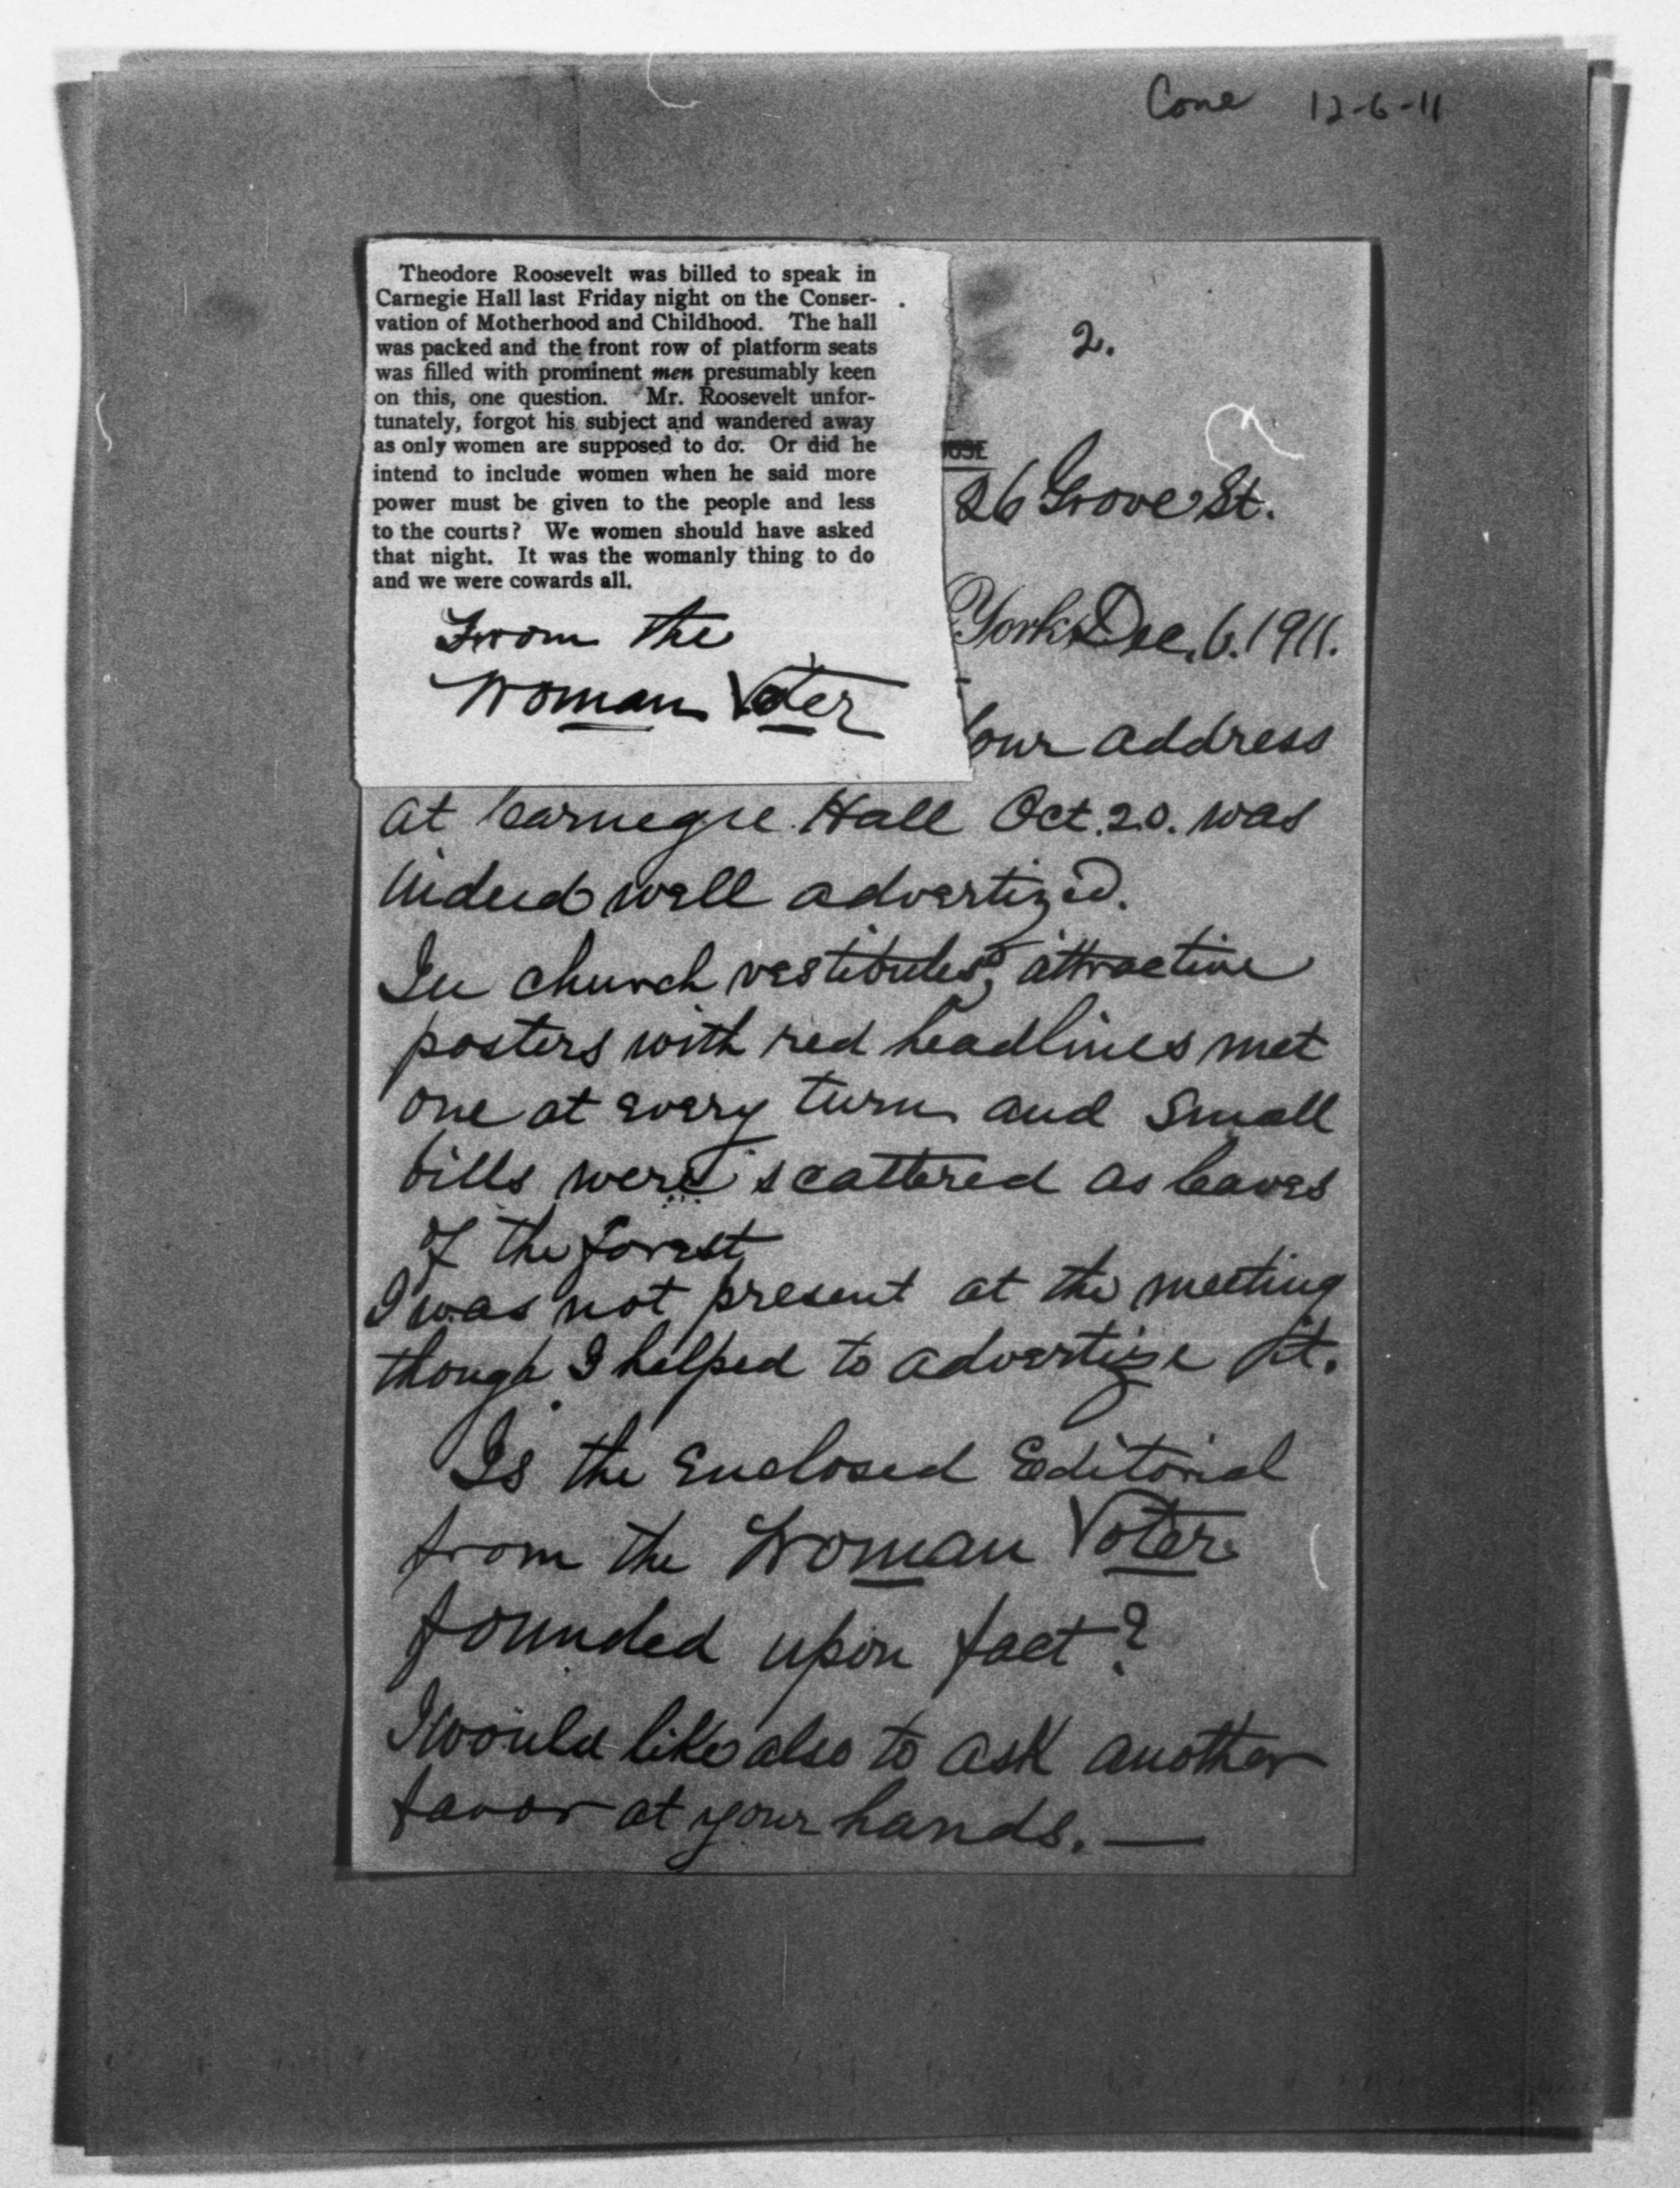 Cone 12-6-11
Theodore Roosevelt was billed to speak in
Carnegie Hall last Friday night on the Conser-
vation of Motherhood and Childhood. The hall
was packed and the front row of platform seats
was filled with prominent men presumably keen
on this, one question. Mr. Roosevelt unfor-
tunately, forgot his subject and wandered away
as only women are supposed to do. Or did he
intend to include women when he said more
power must be given to the people and less
to the courts? We women should have asked
that night. It was the womanly thing to do
and we were cowards all.
From the
Woman Voter
2.
26 Grove St.
York, Dec. 6. 1911.
Your address
at Carnegie Hall Oct. 20. was
indeed well advertized.
In church vestibules, attractive
posters with red headlines met
one at every turn and small
bills were scattered as leaves
of the forest
I was not present at the meeting
though I helped to advertize it.
Is the enclosed Editorial
from the Woman Voter
founded upon fact?
I would like also to ask another
favor at your hands. —